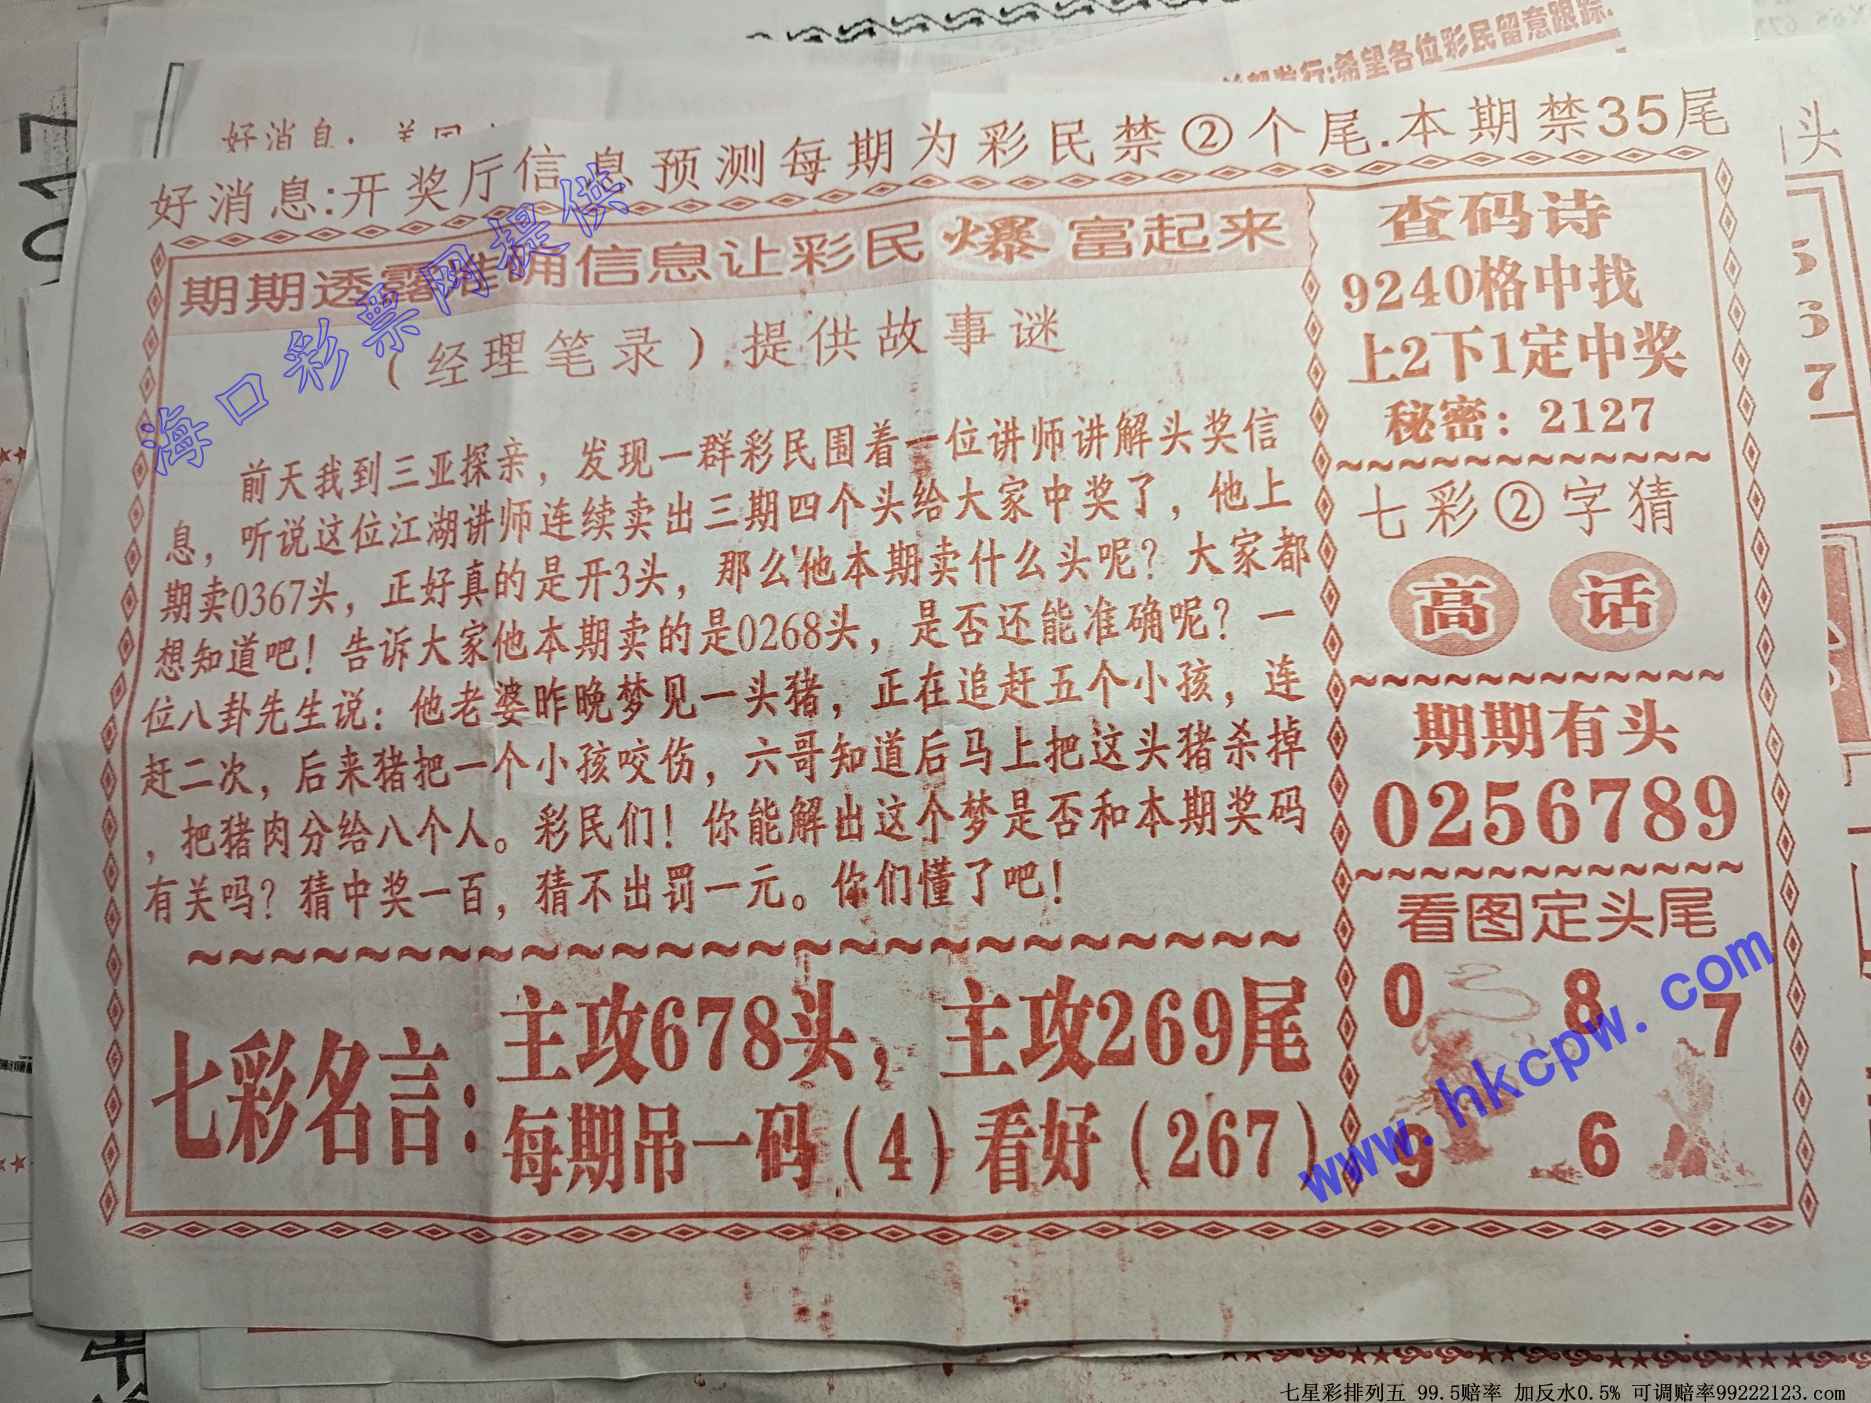 长期发行:希望各位彩民留意跟踪.
好消息:
好消息:开奖厅信息预测每期为彩民禁②个尾.本期禁35尾
期期透露准确信息让彩民爆富起来
(经理笔录).提供故事谜
前天我到三亚探亲，发现一群彩民围着一位讲师讲解头奖信
息，听说这位江湖讲师连续卖出三期四个头给大家中奖了，他上
期卖0367头，正好真的是开3头，那么他本期卖什么头呢？大家都
想知道吧！告诉大家他本期卖的是0268头，是否还能准确呢？一
位八卦先生说：他老婆昨晚梦见一头猪，正在追赶五个小孩，连
赶二次，后来猪把一个小孩咬伤，六哥知道后马上把这头猪杀掉
，把猪肉分给八个人。彩民们！你能解出这个梦是否和本期奖码
有关吗？猜中奖一百，猜不出罚一元。你们懂了吧！
七彩名言:
主攻678头，主攻269尾
每期吊一码(4)看好(267)
查码诗
9240格中找
上2下1定中奖
秘密：2127
七彩②字猜
高 话
期期有头
0256789
看图定头尾
0 8 7
9 6
海口彩票网提供
www.hkcpw.com
七星彩排列五 99.5赔率 加反水0.5% 可调赔率99222123.com